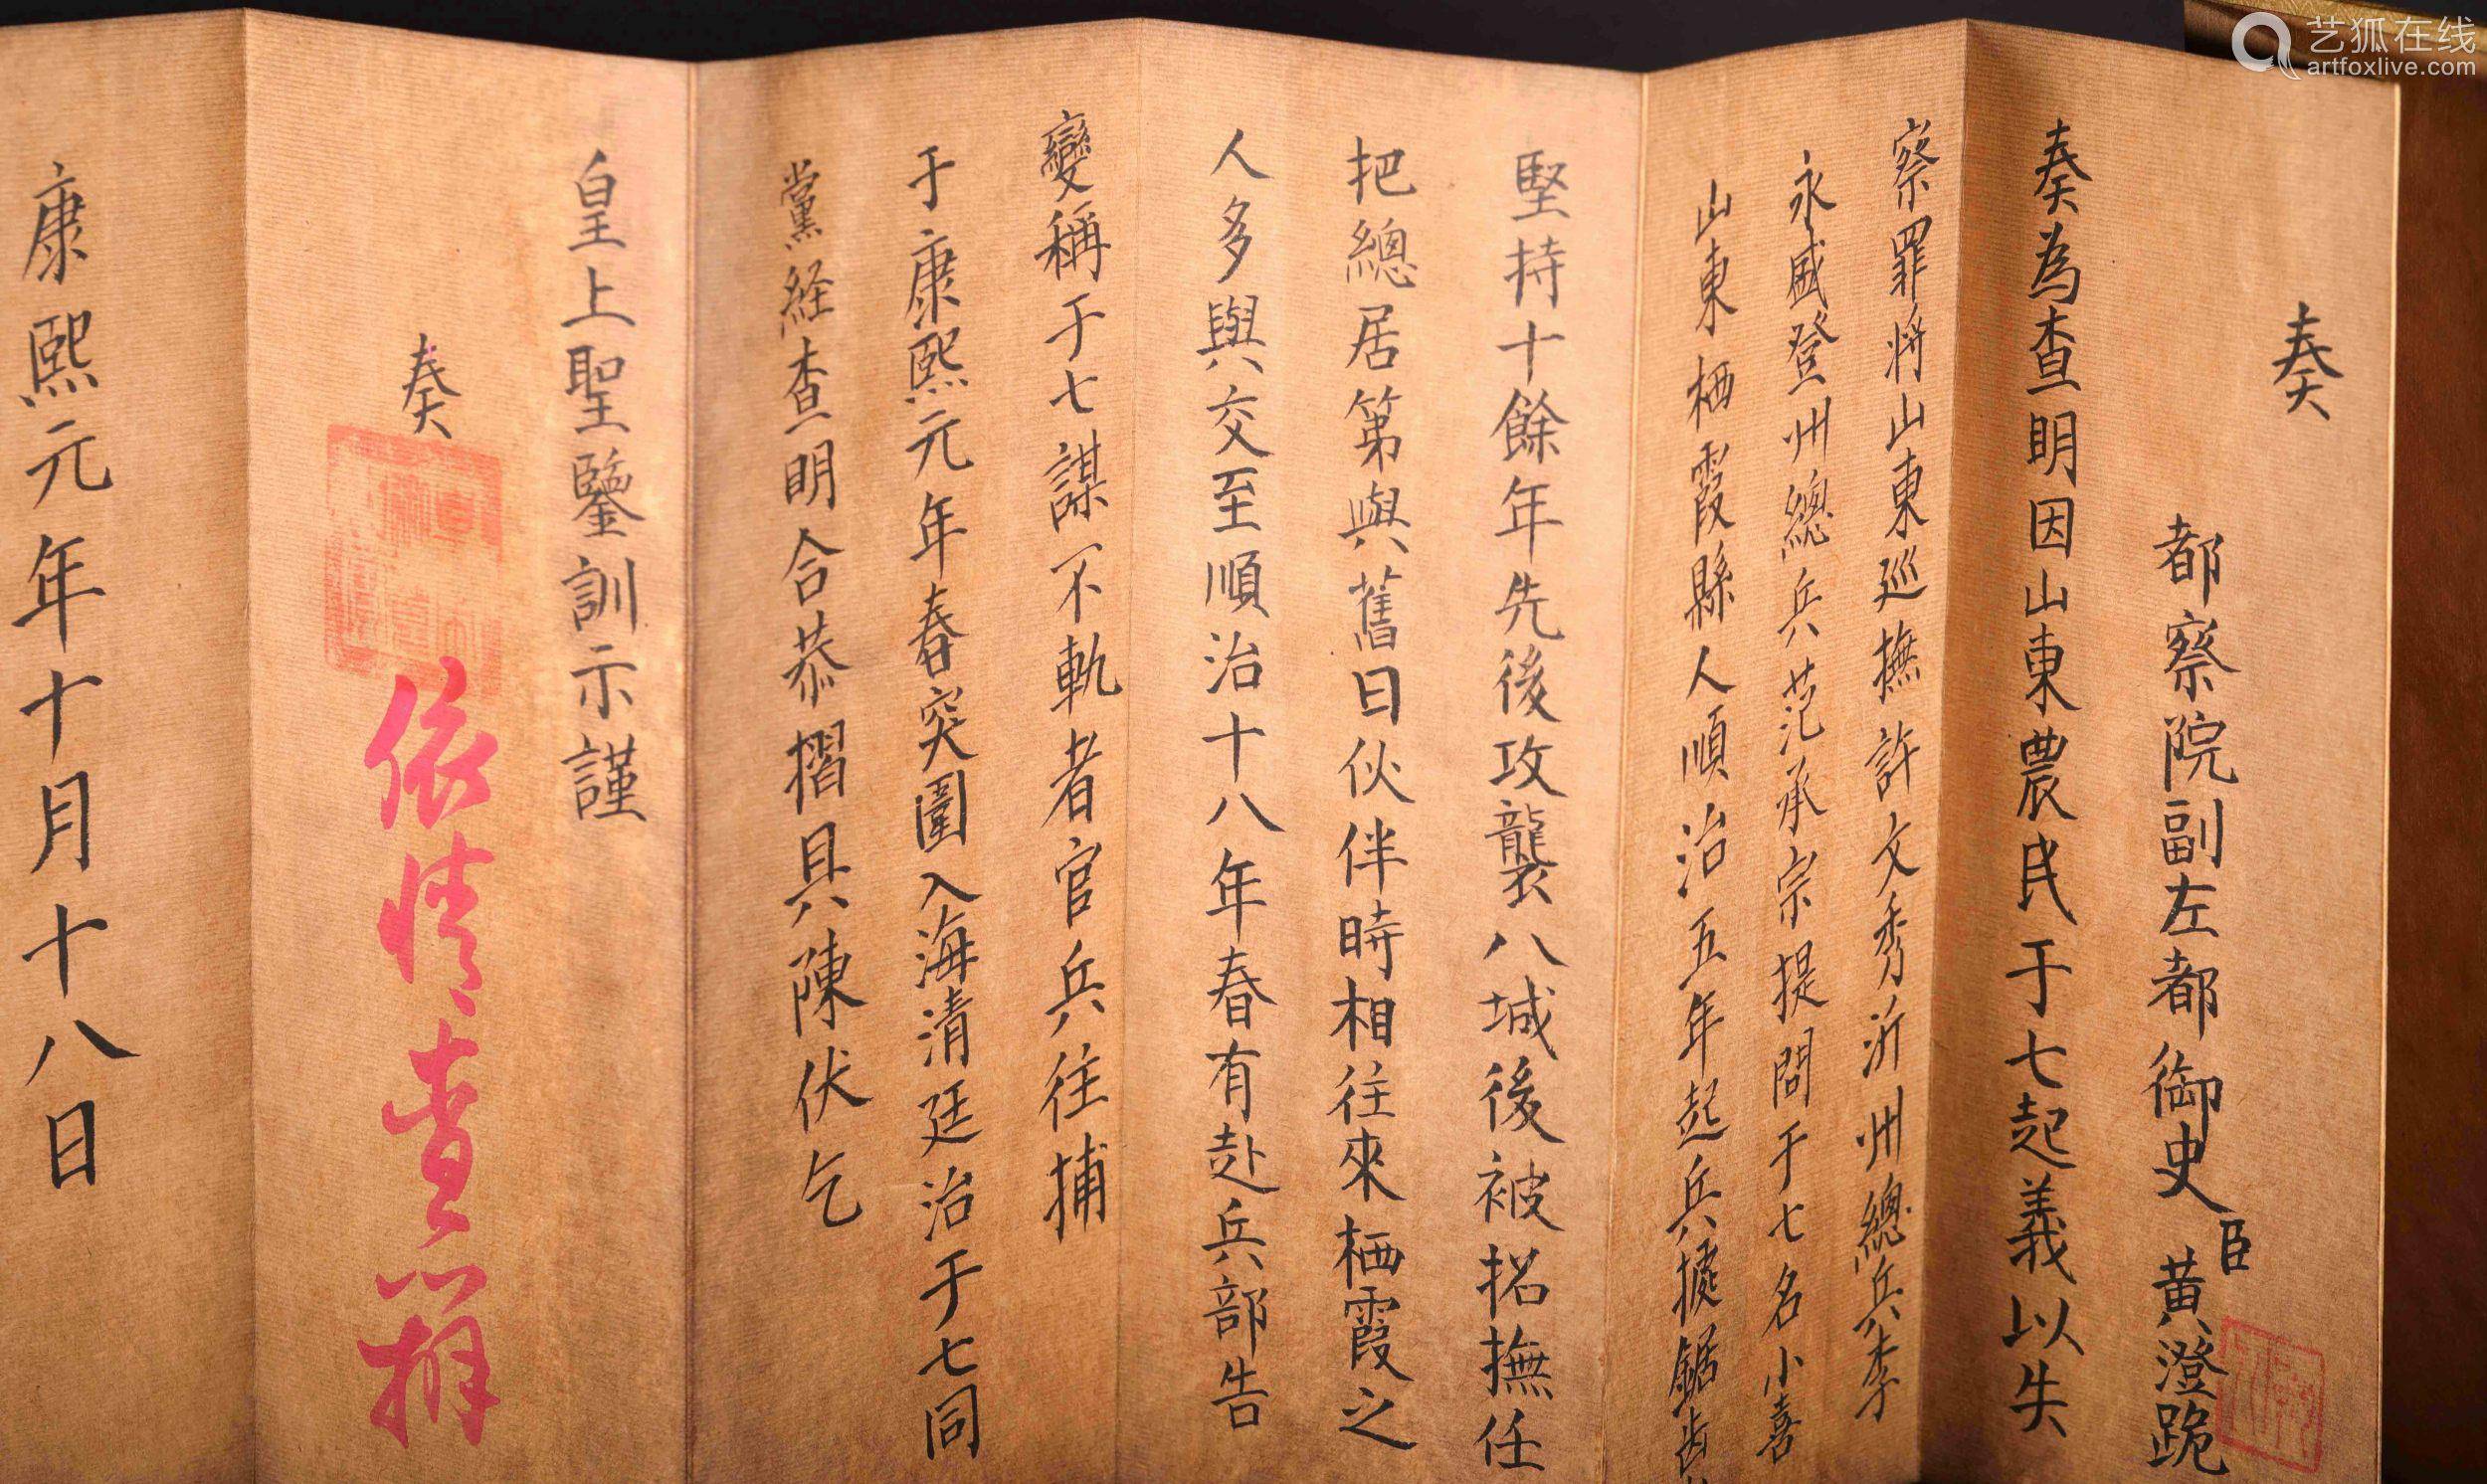 奏
都察院副左都御史臣黄澄跪
奏為查明因山東農民于七起義以失
察罪將山東巡撫許文秀沂州總兵李
永盛登州總兵范承宗提問于七名小喜
山東栖霞縣人順治五年起兵據鋸齒
堅持十餘年先後攻襲八城後被招撫任
把總居第與舊日伙伴時相往來栖霞之
人多與交至順治十八年春有赴兵部告
變稱于七謀不軌者官兵往捕
于康熙元年春突圍入海清廷治于七同
黨経查明合恭摺具陳伏乞
皇上聖鑒訓示謹
奏
依情查辦
康熙元年十月十八日
艺狐在线
artfoxlive.com